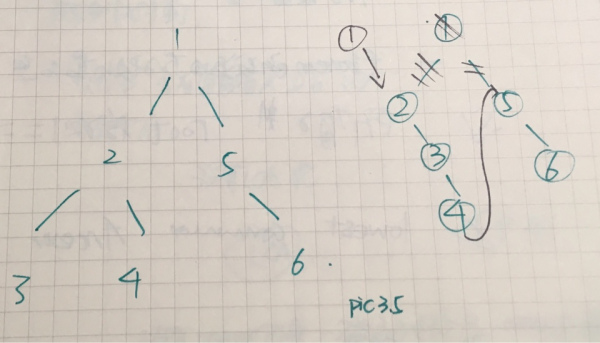 1
2 5
3 4 6.
① ①
② ⑤
③ ⑥
④
pic3.5